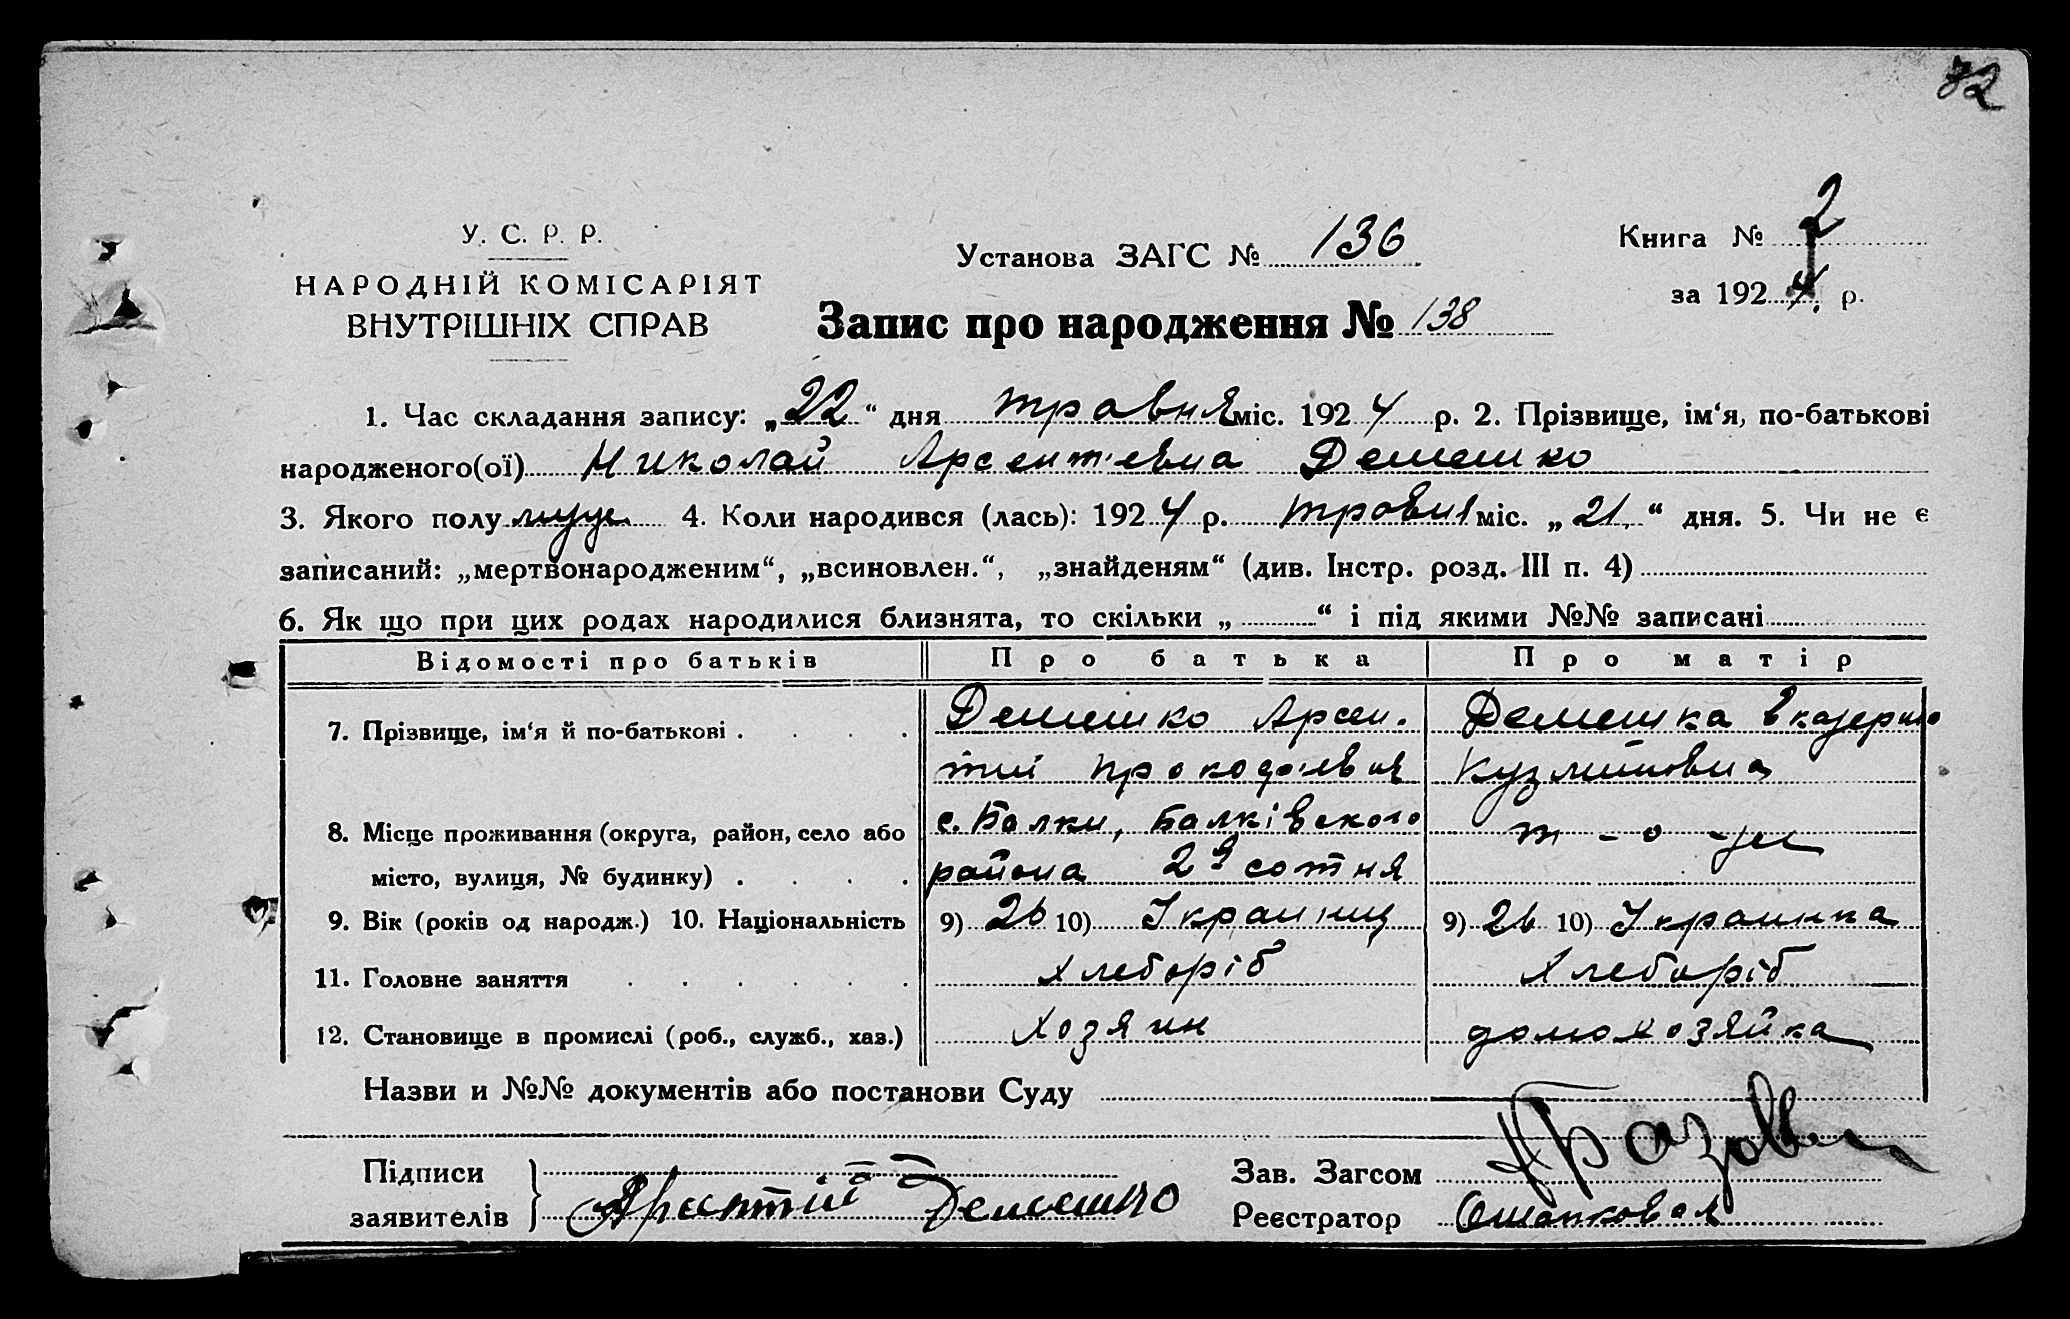 72
У. С. Р. Р.
НАРОДНІЙ КОМІСАРІЯТ
ВНУТРІШНІХ СПРАВ
Установа ЗАГС № 136
Книга № 2
за 1924. р.
Запис про народження № 138
1. Час складання запису: „22“ дня травня міс. 1924 р. 2. Прізвище, ім‘я, по-батькові
народженого(ої) Николай Арсент'евиа Демешко
3. Якого полу муж. 4. Коли народився (лась): 1924 р. травня міс. „21“ дня. 5. Чи не є
записаний: „мертвонародженим“, „всиновлен.“, „знайденям“ (див. Інстр. розд. III п. 4)
6. Як що при цих родах народилися близнята, то скільки „ “ і під якими №№ записані
Відомості про батьків Про батька Про матір
7. Прізвище, ім‘я й по-батькові . . . . Демешко Арсен. Демешка Вкатерина
тий Прокоф'евия Кузминовна
8. Місце проживання (округа, район, село або с. Балки, Балківского т-о-ж
місто, вулиця, № будинку) . . . . района 2я сотня
9. Вік (років од народж.) 10. Національність 9) 26 10) Украинц 9) 26 10) Украинка
11. Головне заняття . . . . . . Хлеборіб Хлеборіб
12. Становище в промислі (роб., служб., хаз.) Хозяин домохозяйка
Назви и №№ документів або постанови Суду
Підписи
заявителів Арситтій Демешко
Зав. Загсом
Реєстратор Ошапковая